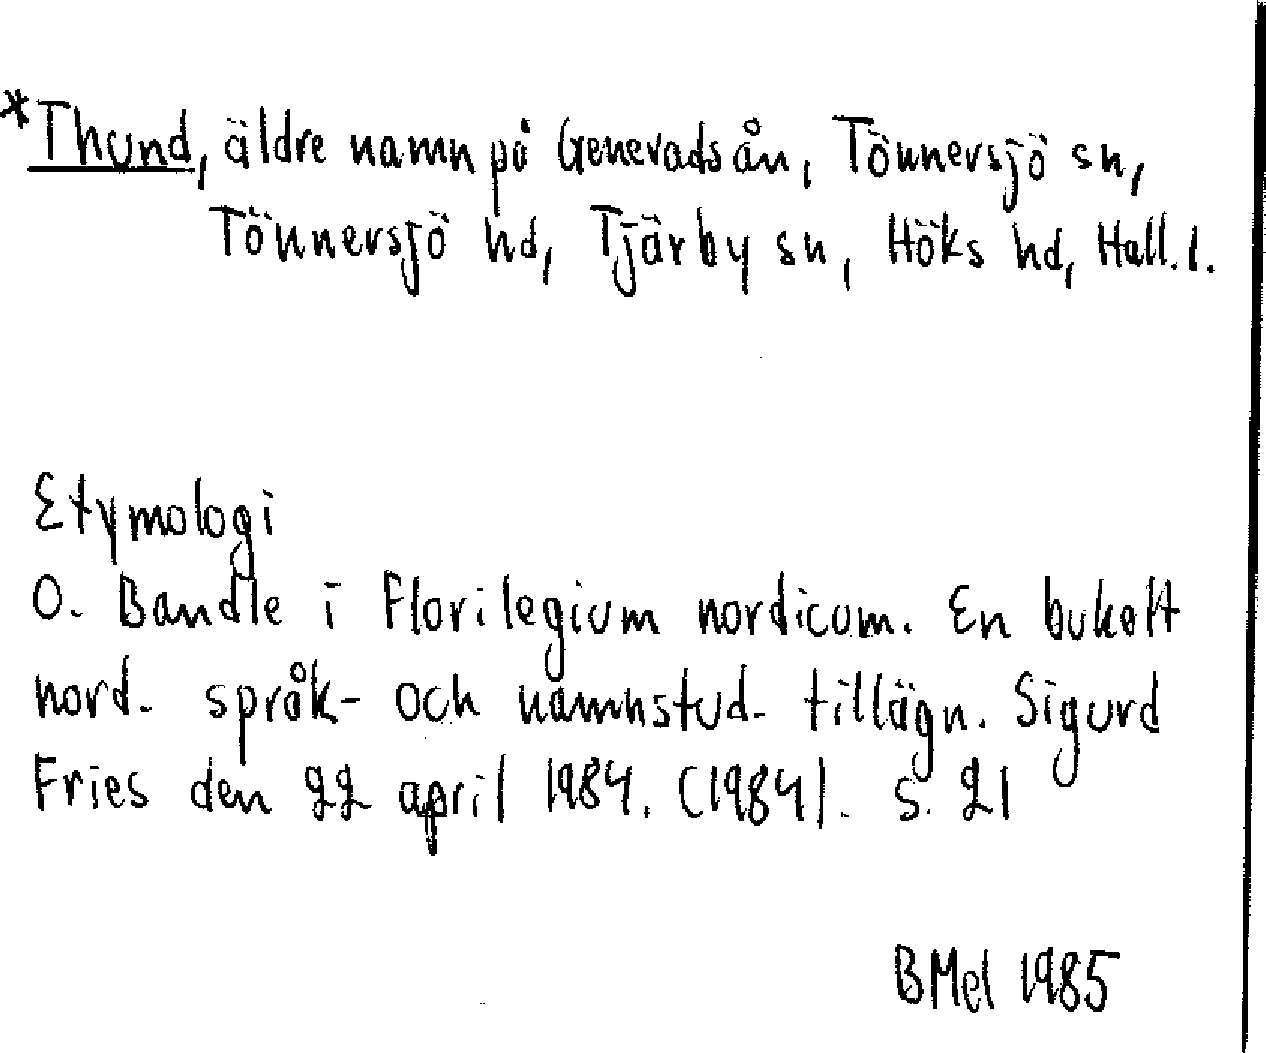 *Thund, äldre namn på Genevadsån, Tönnersjö sn,
Tönnersjö hd, Tjärby sn, Höks hd, Hall. l.
Etymologi
O. Bandle i Florilegium nordicum. En bukett
nord. språk- och namnstud. tillägn. Sigurd
Fries den 22 april 1984. (1984). S. 21
BMel 1985